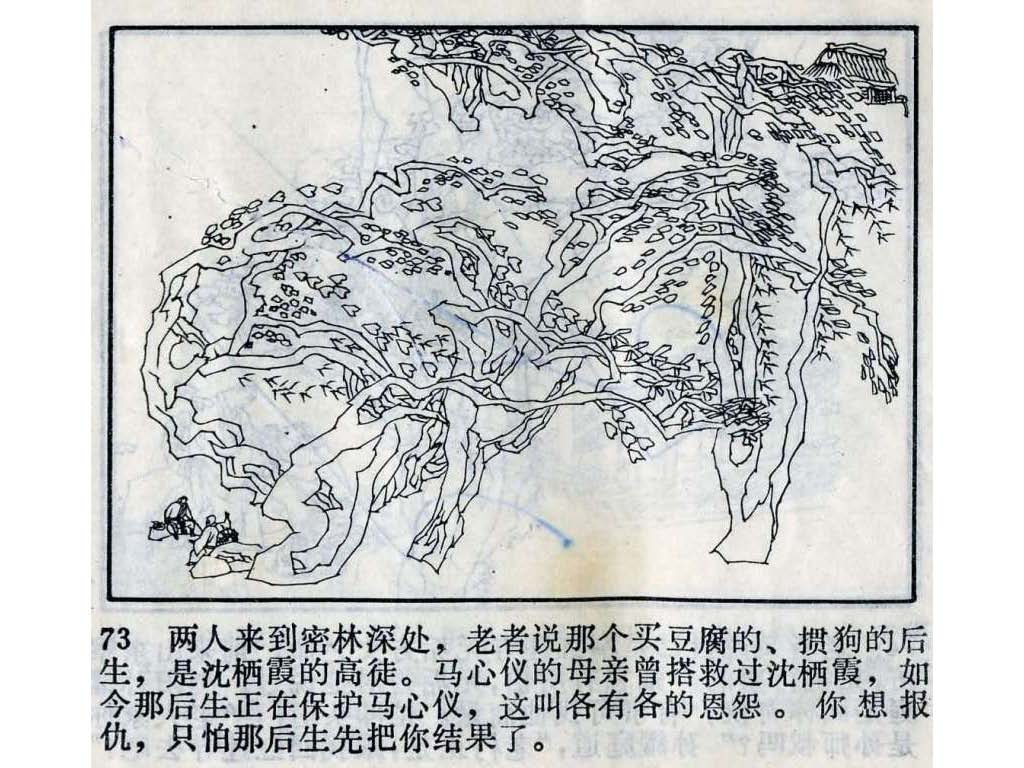 73 两人来到密林深处，老者说那个买豆腐的、掼狗的后
生，是沈栖霞的高徒。马心仪的母亲曾搭救过沈栖霞，如
今那后生正在保护马心仪，这叫各有各的恩怨。你想报
仇，只怕那后生先把你结果了。